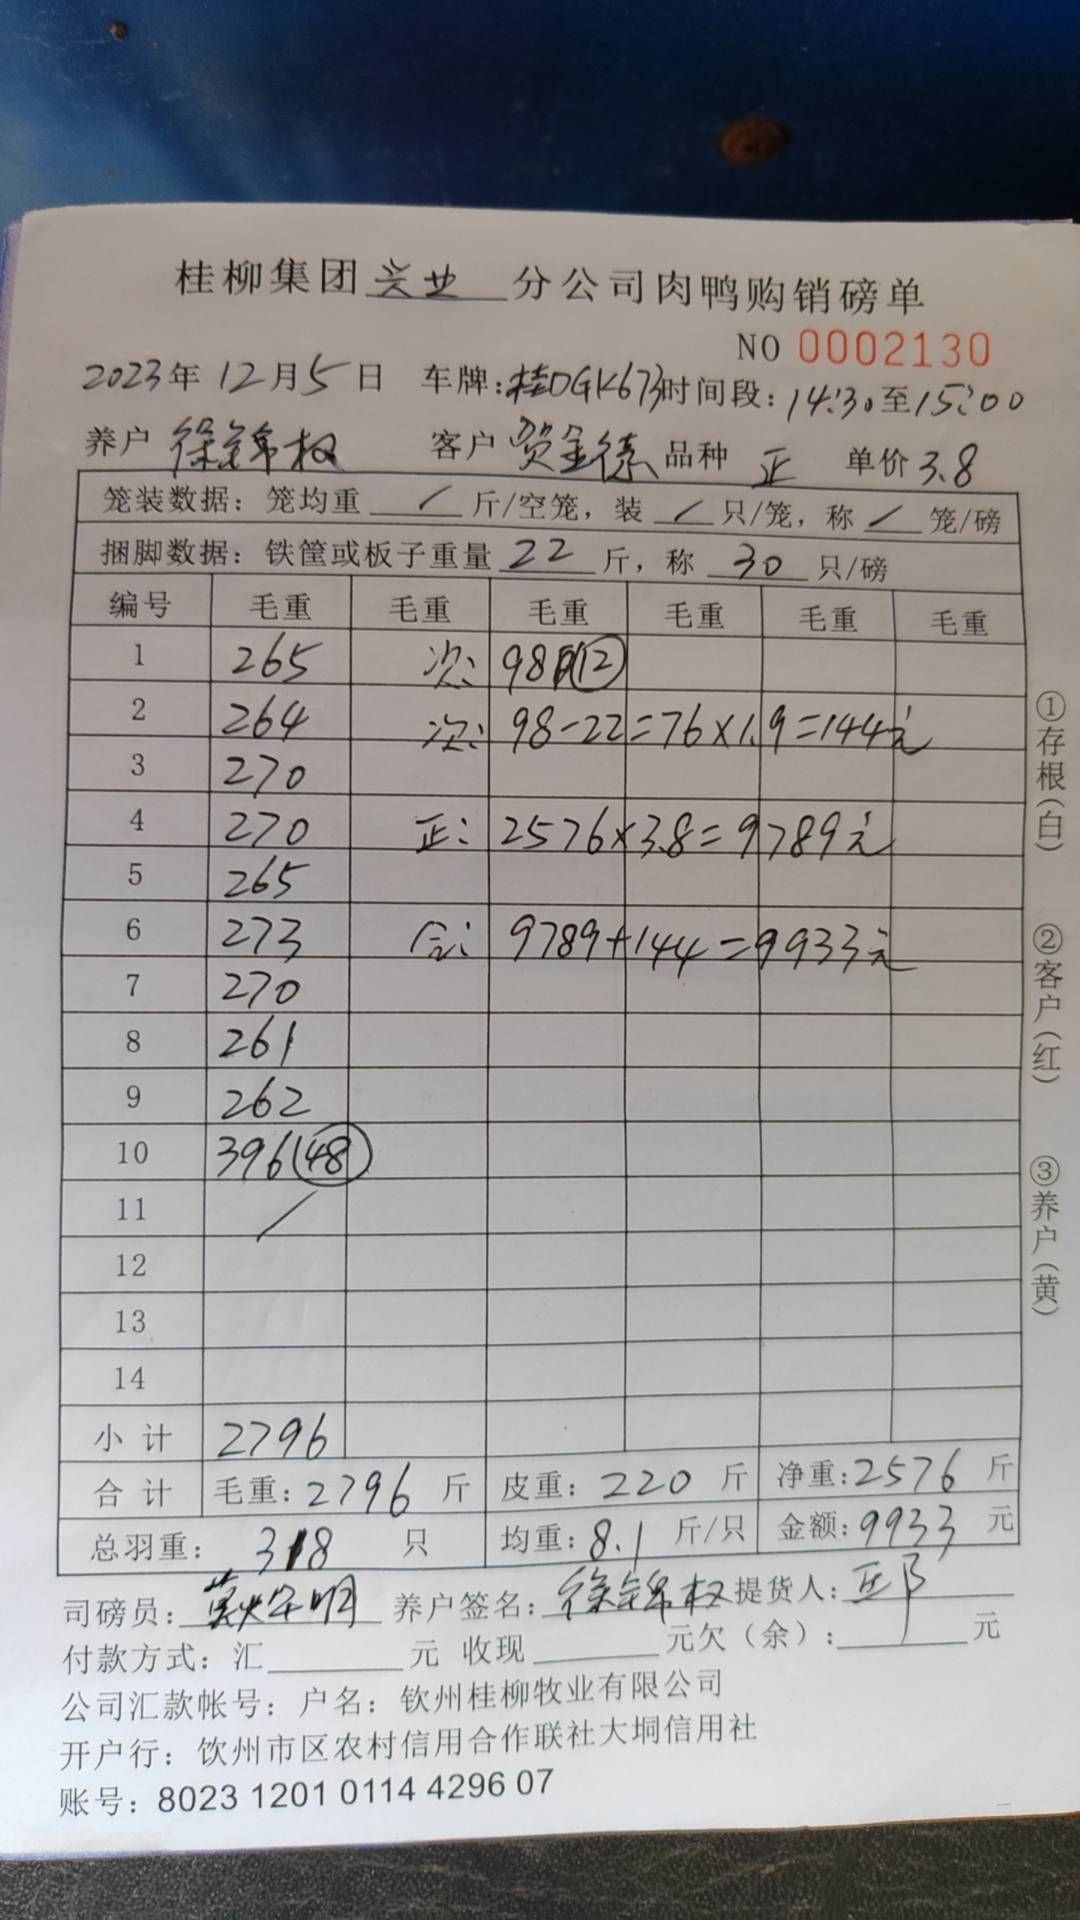 桂柳集团兴业分公司肉鸭购销磅单
NO 0002130
2023年12月5日 车牌:桂DGK673时间段:14:30至15:00
养户 徐锦权 客户 贺金德 品种 正 单价3.8
笼装数据:笼均重 / 斤/空笼,装 / 只/笼,称 / 笼/磅
捆脚数据:铁筐或板子重量 22 斤,称 30 只/磅
编号 毛重 毛重 毛重 毛重 毛重 毛重
1 265 次: 98 (12)
2 264 次: 98-22=76×1.9=144元
3 270
4 270 正: 2576×3.8=9789元
5 265
6 273 合: 9789+144=9933元
7 270
8 261
9 262
10 396(48)
11 /
12
13
14
小计 2796
合计 毛重:2796 斤 皮重:220 斤 净重:2576 斤
总羽重: 318 只 均重:8.1 斤/只 金额:9933 元
司磅员: 养户签名:徐锦权 提货人:
付款方式:汇 元 收现 元欠(余): 元
公司汇款帐号:户名:钦州桂柳牧业有限公司
开户行:饮州市区农村信用合作联社大垌信用社
账号:8023 1201 0114 4296 07
①存根(白)
②客户(红)
③养户(黄)